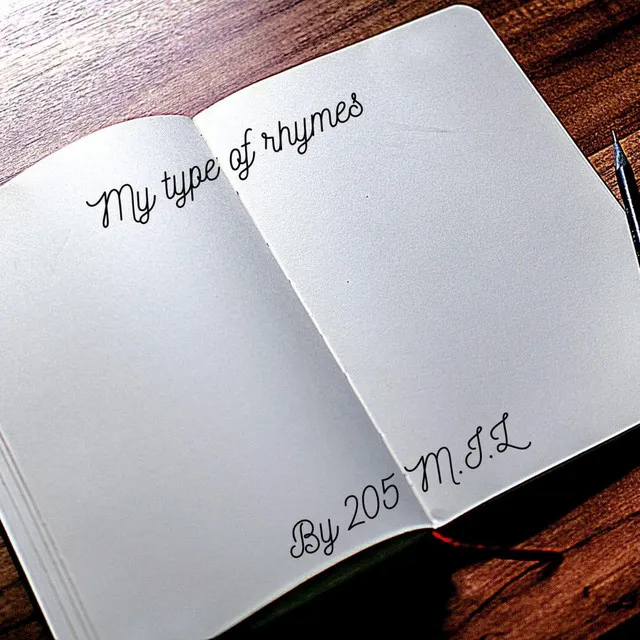 My type of rhymes
By 205 M.I.L